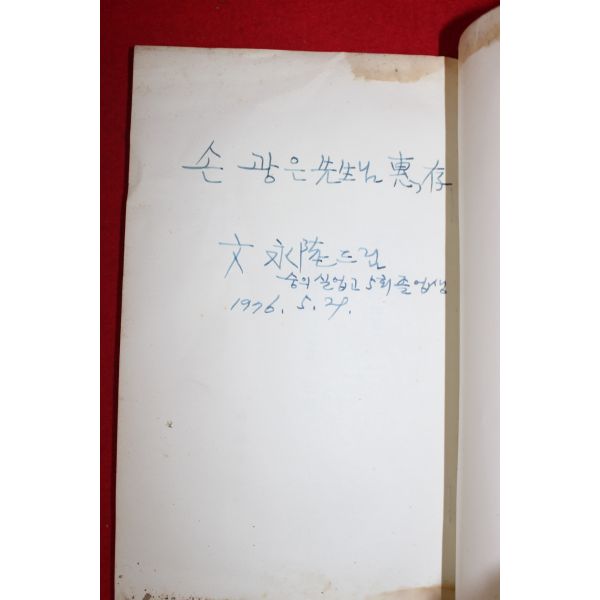 손 광은 先生님 惠存
文 永隆 드림
숭의실업고 5회 졸업생
1976. 5. 29.